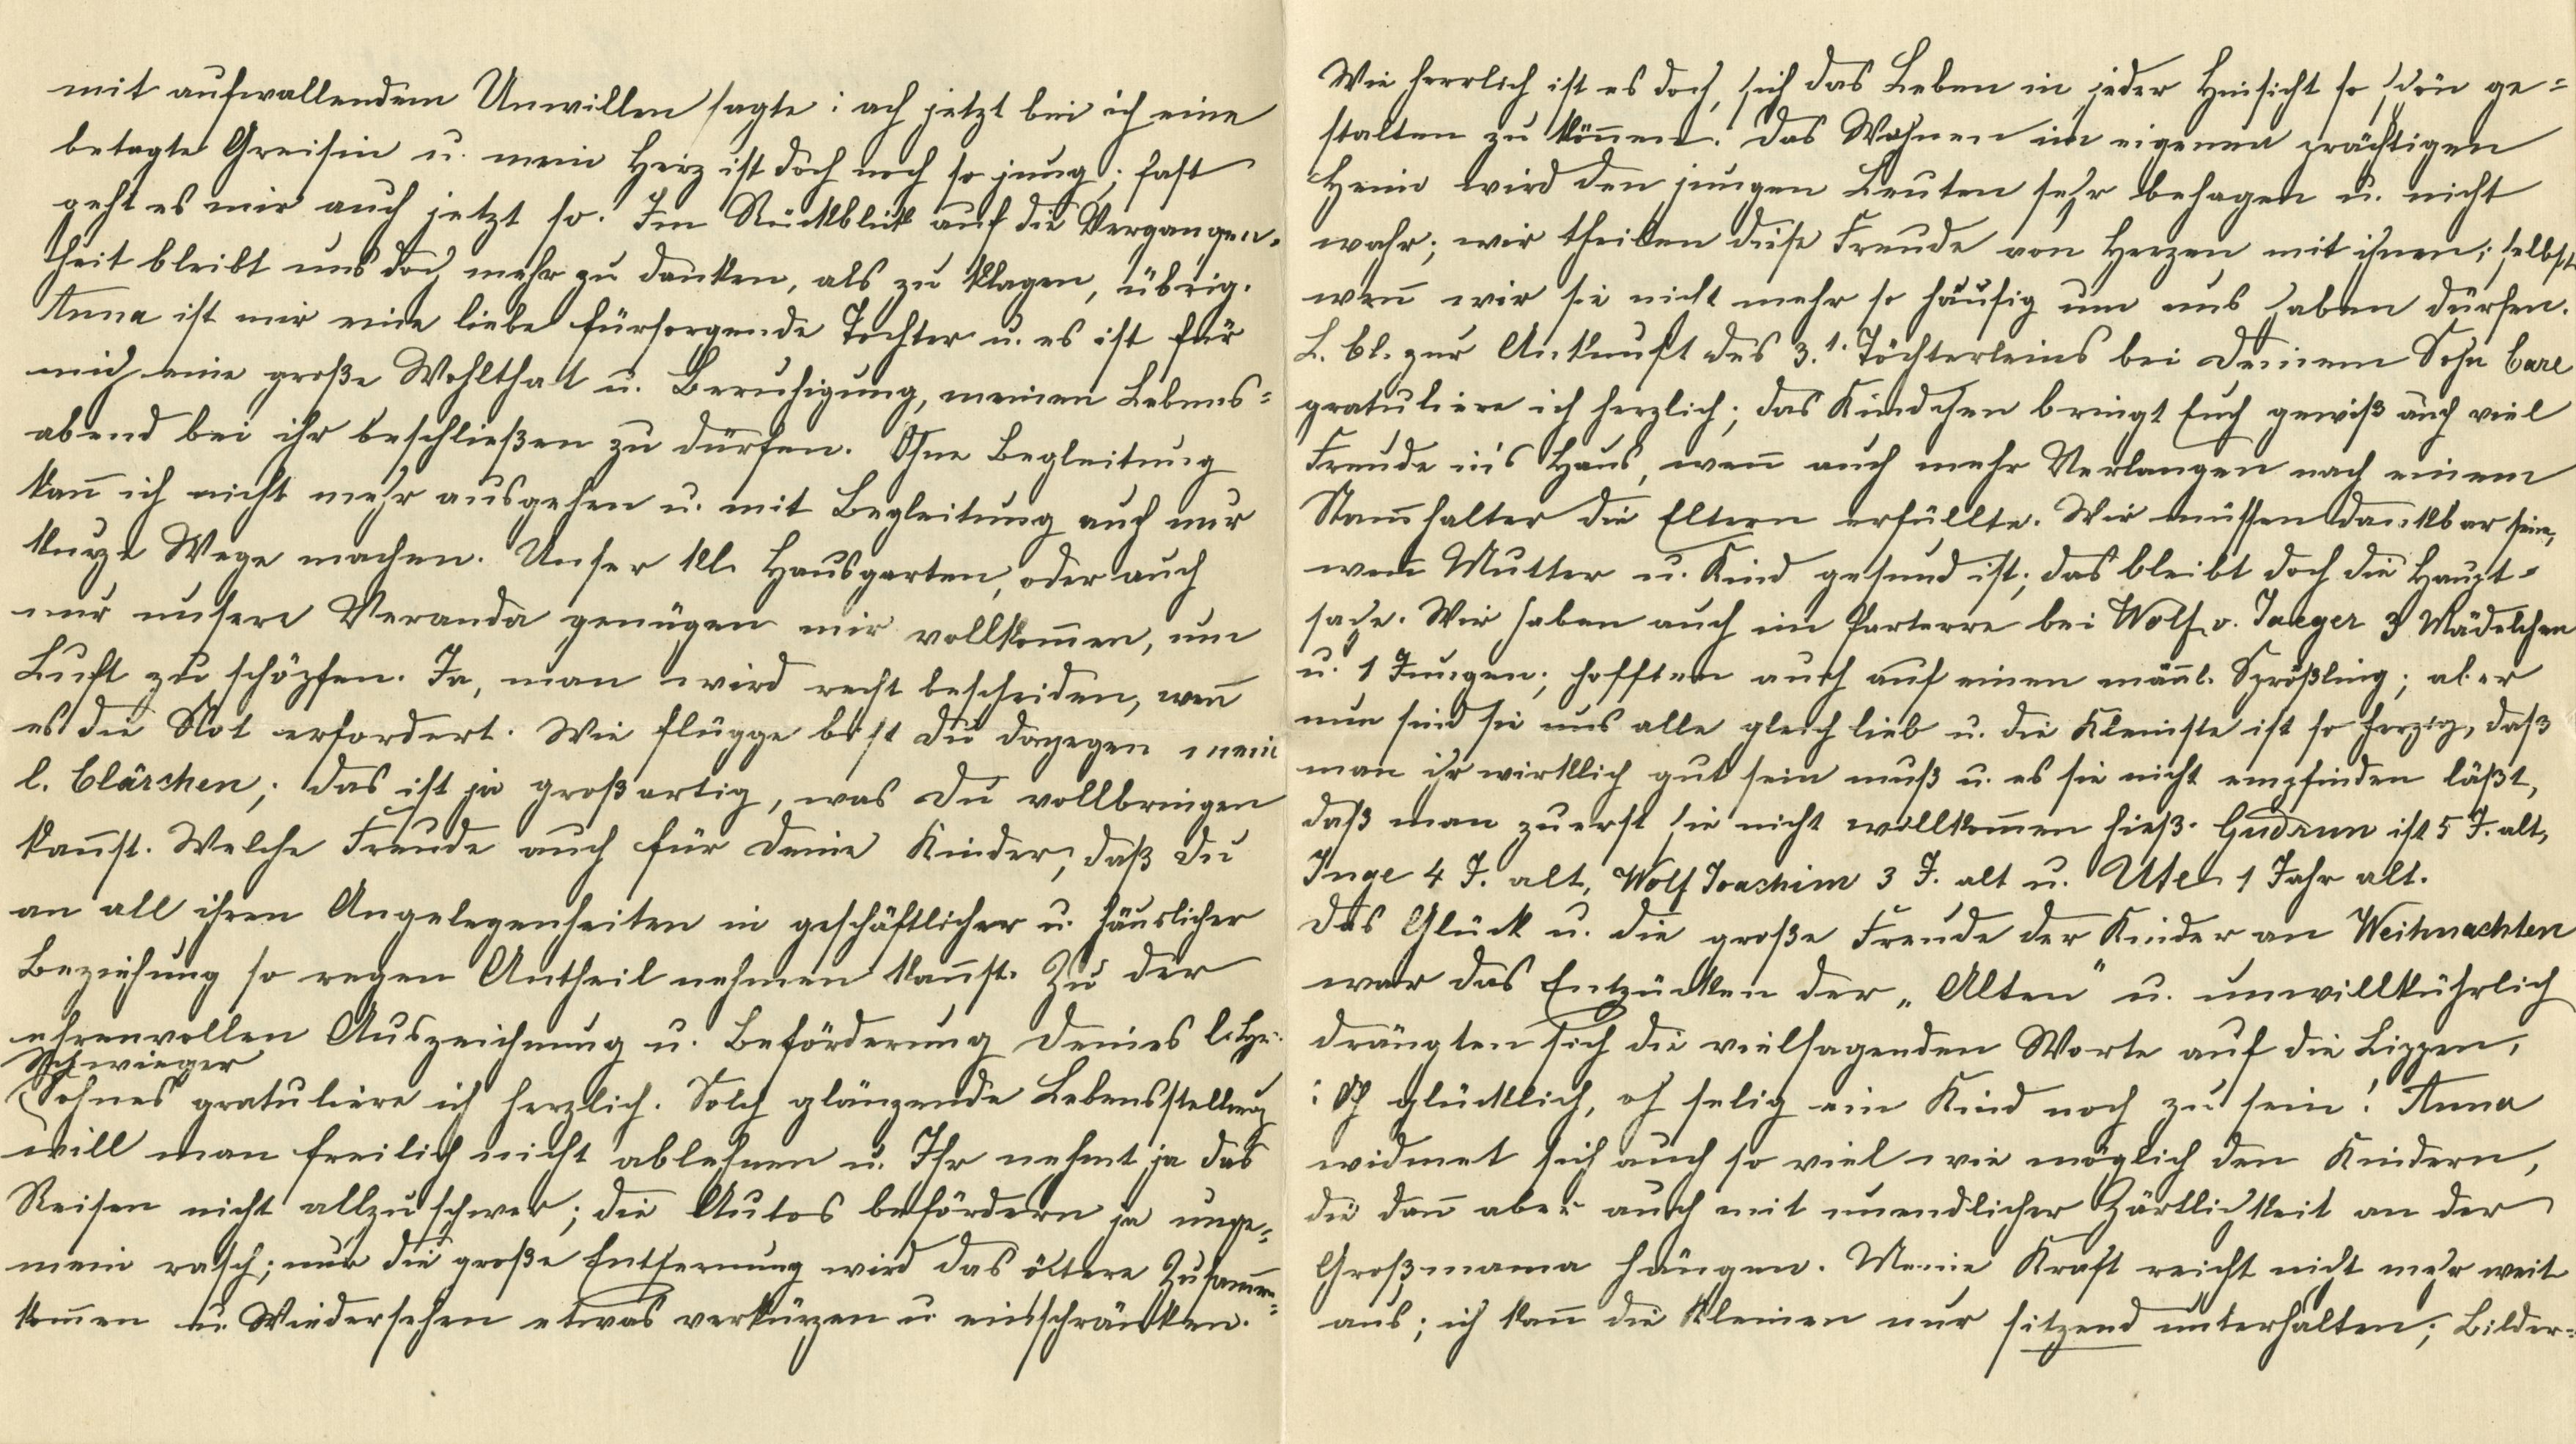 mit aufwallendem Unwillen sagte: ach jetzt bin ich eine
betagte Greisin u. mein Herz ist doch noch so jung; fast
geht es mir auch jetzt so. Im Rückblick auf die Vergangen-
heit bleibt uns doch mehr zu danken, als zu klagen, übrig.
Anna ist mir eine liebe fürsorgende Tochter u. es ist für
mich eine große Wohlthat u. Beruhigung, meinen Lebens-
abend bei ihr beschließen zu dürfen. Ohne Begleitung
kann ich nicht mehr ausgehen u. mit Begleitung auch nur
kurze Wege machen. Unser kl. Hausgarten, oder auch
nur unsere Veranda genügen mir vollkommen, um
Luft zu schöpfen. Ja, man wird recht bescheiden, wenn
es die Not erfordert. Wie flügge bist Du dagegen mein
l. Clärchen; das ist ja großartig, was Du vollbringen
kannst. Welche Freude auch für Deine Kinder, daß Du
an all ihren Angelegenheiten in geschäftlicher u. häuslicher
Beziehung so regen Antheil nehmen kannst. Zu der
ehrenvollen Auszeichnung u. Beförderung Deines l. Hr.
Schwieger
Sohnes gratuliere ich herzlich. Solch glänzende Lebensstellung
will man freilich nicht ablehnen u. Ihr nehmt ja das
Reisen nicht allzuschwer; die Autos befördern ja unge-
mein rasch; nur die große Entfernung wird das öftere Zusammen-
kommen u. Wiedersehen etwas verkürzen u. einschränken.
Wie herrlich ist es doch, sich das Leben in jeder Hinsicht so schön ge-
stalten zu können. Das Wohnen im eigenen prächtigen
Heim wird den jungen Leuten sehr behagen u. nicht
wahr; wir theilen diese Freude von Herzen mit ihnen; selbst
wenn wir sie nicht mehr so häufig um uns haben dürfen.
L. Cl. zur Ankunft des 3.t. Töchterleins bei Deinem Sohn Carl
gratuliere ich herzlich; das Kindchen bringt Euch gewiß auch viel
Freude in's Haus, wenn auch mehr Verlangen nach einem
Stammhalter die Eltern erfüllte. Wir müssen dankbar sein,
wenn Mutter u. Kind gesund ist; das bleibt doch die Haupt-
sache. Wir haben auch im Parterre bei Wolf v. Jaeger 3 Mädelchen
u. 1 Jungen; hofften auch auf einen männl. Sprößling; aber
nun sind sie uns alle gleich lieb u. die Kleinste ist so herzig, daß
man ihr wirklich gut sein muß u. es sie nicht empfinden läßt,
daß man zuerst sie nicht willkommen hieß. Gudrun ist 5 J. alt,
Inge 4 J. alt, Wolf Joachim 3 J. alt u. Ute 1 Jahr alt.
Das Glück u. die große Freude der Kinder an Weihnachten
war das Entzücken der „Alten" u. unwillkührlich
drängten sich die vielsagenden Worte auf die Lippen,
: Oh glücklich, oh selig ein Kind noch zu sein! Anna
widmet sich auch so viel wie möglich den Kindern,
die dann aber auch mit unendlicher Zärtlichkeit an der
Großmama hängen. Meine Kraft reicht nicht mehr weit
aus; ich kann die Kleinen nur sitzend unterhalten; Bilder-